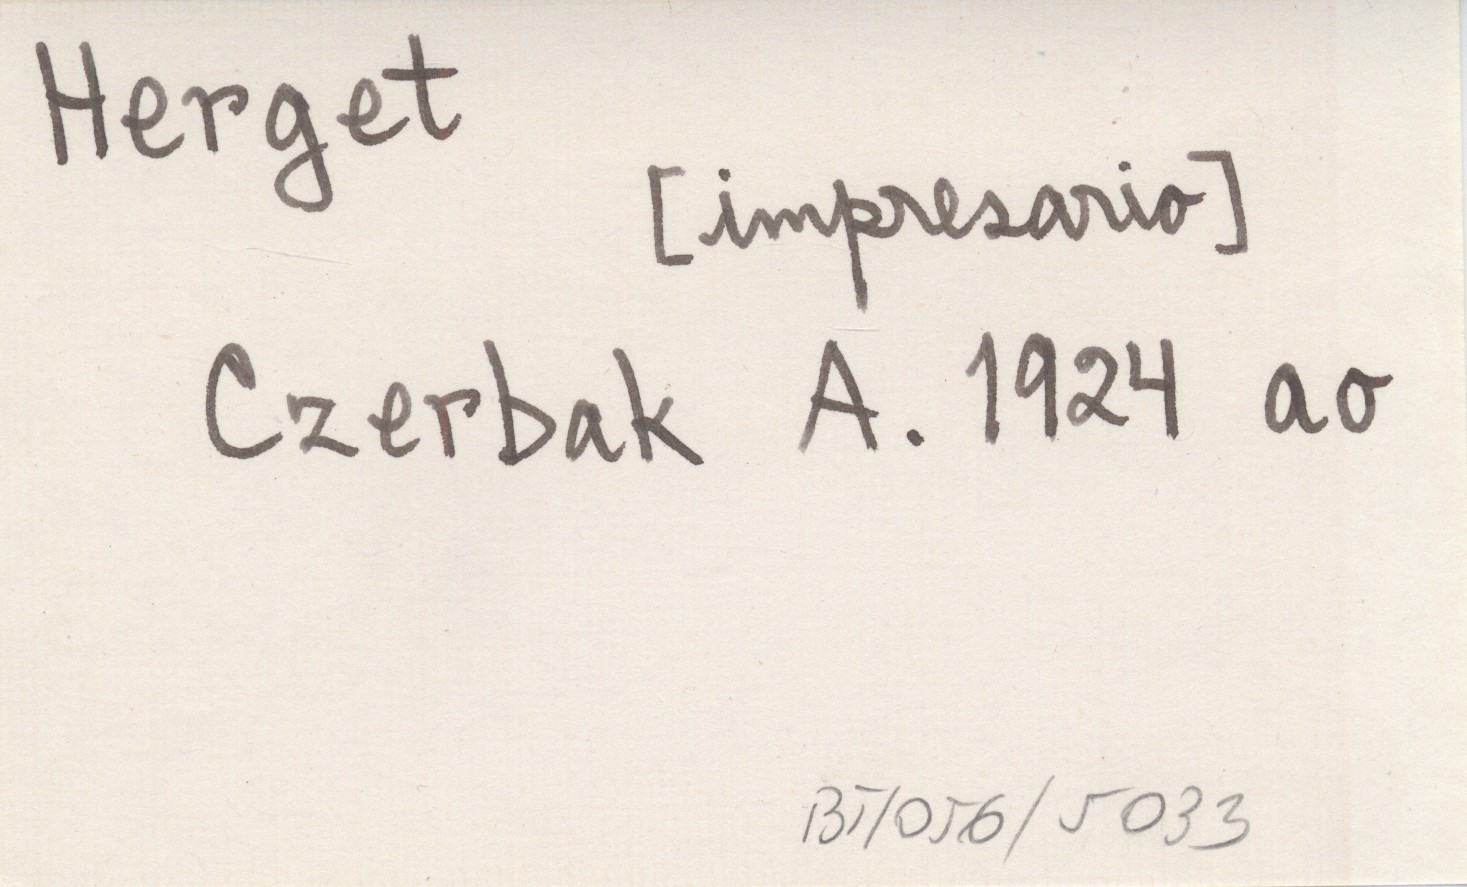 Herget
[impresario]
Czerbak A. 1924 ao
BT/056/5033